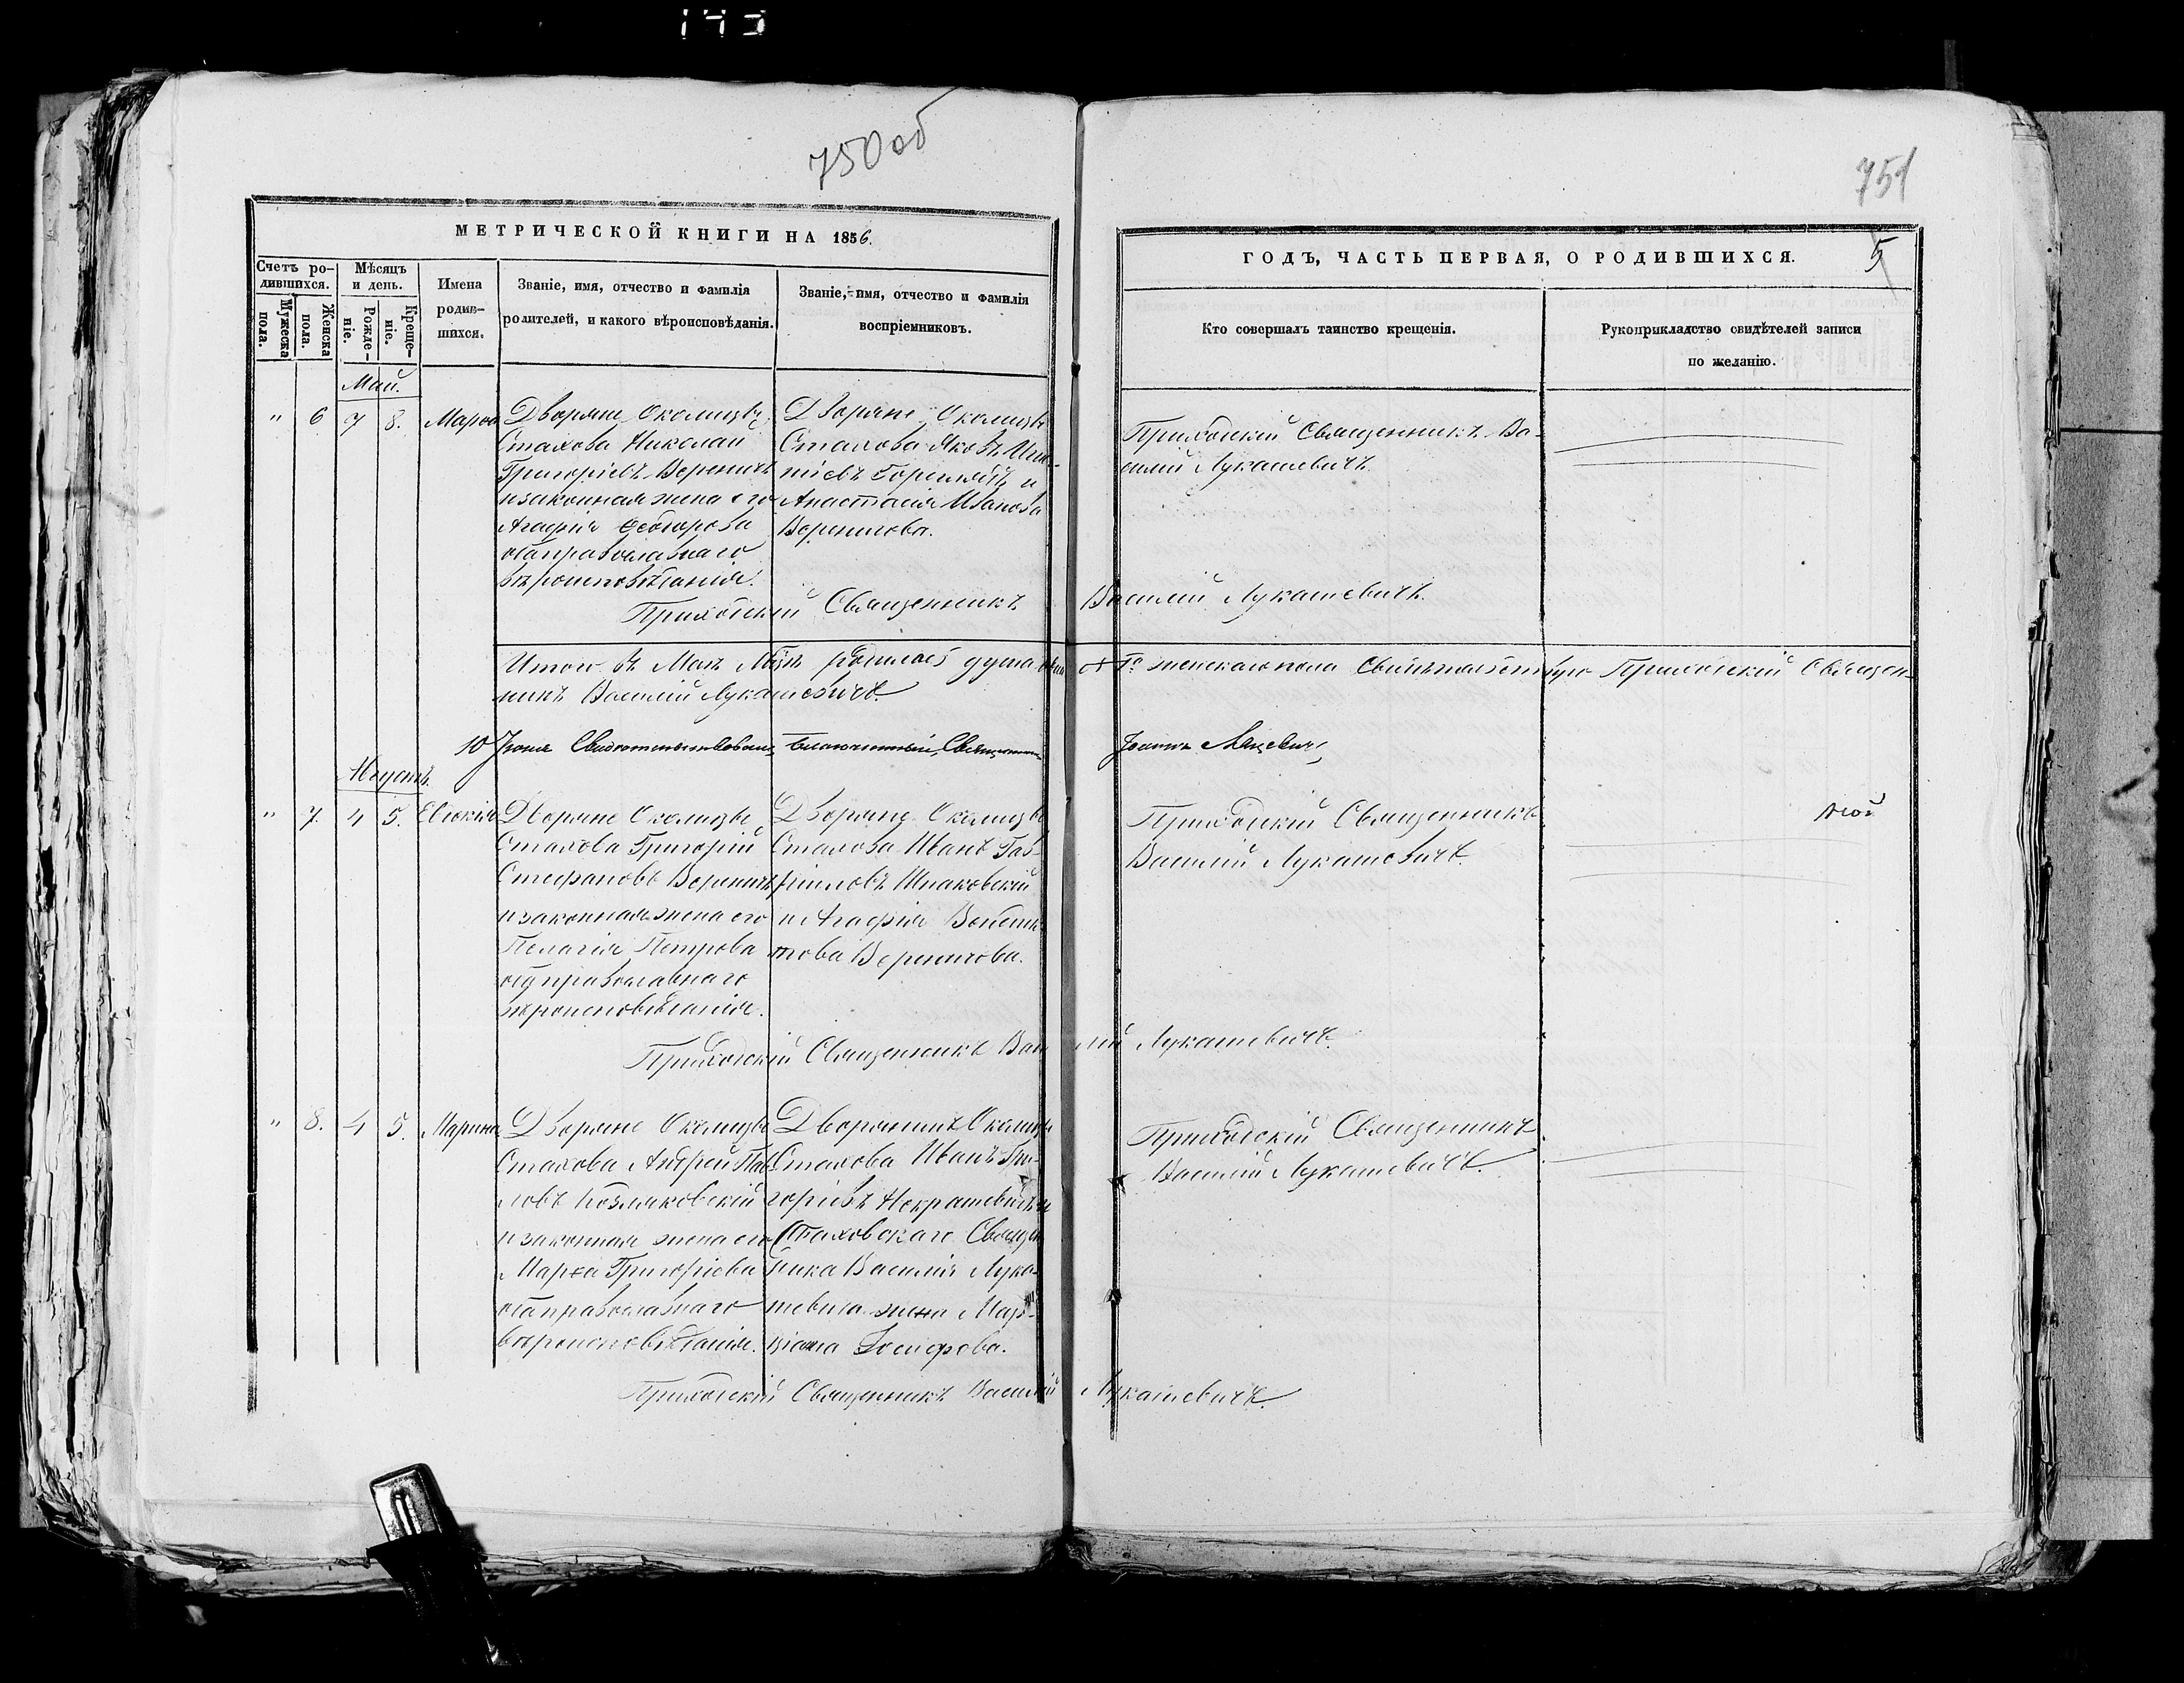 750 об
751
МЕТРИЧЕСКОЙ КНИГИ НА 1856.
Счетъ ро-
дившихся.
Мужеска
пола.
Женска
пола.
Мѣсяцъ
и день.
Рожде-
ніе.
Креще-
ніе.
Имена
родив-
шихся.
Званіе, имя, отчество и фамилія
родителей, и какого вѣроисповѣданія.
Званіе, имя, отчество и фамилія
воспріемниковъ.
ГОДЪ, ЧАСТЬ ПЕРВАЯ, О РОДИВШИХСЯ.
5
Кто совершалъ таинство крещенія.
Рукоприкладство свидѣтелей записи
по желанію.
Май.
" 6 7 8.
Дворяне Околицы
Стахова Николай
Григоріевъ Вереничъ
и законная жена его
Агафія Ѳеодорова
оба православнаго
вѣроисповѣданія.
Дворяне Околицы
Стахова Яковъ
и
Анастасія Иванова
Вереничова.
Приходскій Священникъ Ва-
силій Лукашевичъ.
Приходскій Священникъ Василій Лукашевичъ.
Итого въ Маѣ родилась душа женскаго пола Свидѣтельствую Приходскій Священ-
никъ Василій Лукашевичъ.
10 Іюня Благочинный, Священникъ Іоаннъ
Августъ.
" 7. 4 5. Евдокія
Дворяне Околицы
Стахова Григорій
Стефановъ Вереничъ
и законная жена его
Пелагія Петрова
оба православнаго
вѣроисповѣданія.
Дворяне Околицы
Стахова Иванъ Гав-
риловъ Шпаковскій
и Агафія
Вереничова.
Приходскій Священникъ
Василій Лукашевичъ.
Приходскій Священникъ Василій Лукашевичъ.
" 8. 4 5. Марина
Дворяне Околицы
Стахова Андрей Пав-
ловъ Козляковскій
и законная жена его
Марѳа Григоріева
оба православнаго
вѣроисповѣданія.
Дворянинъ Околицы
Стахова Иванъ Гри-
горіевъ Некрашевичъ и
Стаховскаго Священ-
ника Василія Лука-
шевича жена Мар-
ціана Іосифова.
Приходскій Священникъ
Василій Лукашевичъ.
Приходскій Священникъ Василій Лукашевичъ.